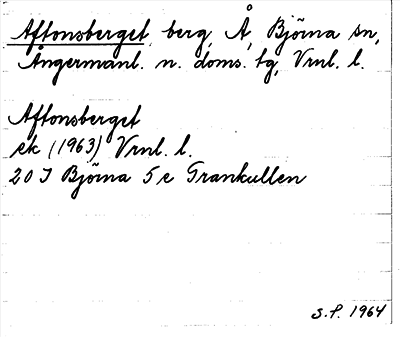 Aftonsberget, berg, Å, Björna sn,
Ångermanl. n. doms. tg, Vrnl. l.
Aftonsberget
ek (1963) Vrnl. l.
20 J Björna 5 e Trankullen
S.P. 1964